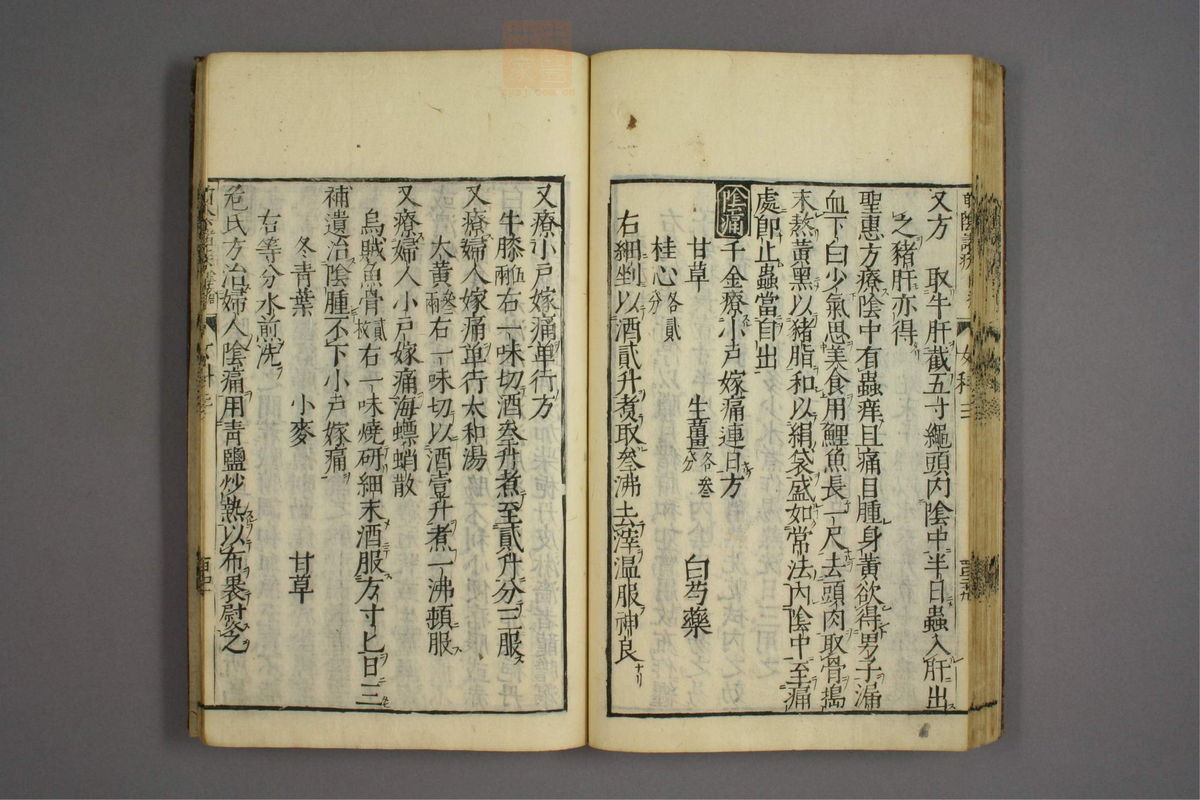 又方 取牛肝截五寸繩頭內陰中半日蟲入肝出
之豬肝亦得
聖惠方療陰中有蟲痒且痛目腫身黃欲得男子漏
血下白少氣思美食用鯉魚長一尺去頭肉取骨搗
末熬黃黑以豬脂和以絹袋盛如常法內陰中至痛
處即止蟲當自出
陰痛 千金療小戶嫁痛連日方
甘草 生薑各叄分 白芍藥
桂心各貳分
右細剉以酒貳升煑取叄沸去滓溫服神良
又療小戶嫁痛單行方
牛膝伍兩右一味切酒叄升煮至貳升分三服
又療婦人嫁痛單行太和湯
大黃叄兩右一味切以酒壹升煮一沸頓服
又療婦人小戶嫁痛海螵蛸散
烏賊魚骨貳枚右一味燒研細末酒服方寸匕日三
補遺治陰腫不下小戶嫁痛
冬青葉 小麥 甘草
右等分水煎洗
危氏方治婦人陰痛用青鹽炒熱以布裹熨之